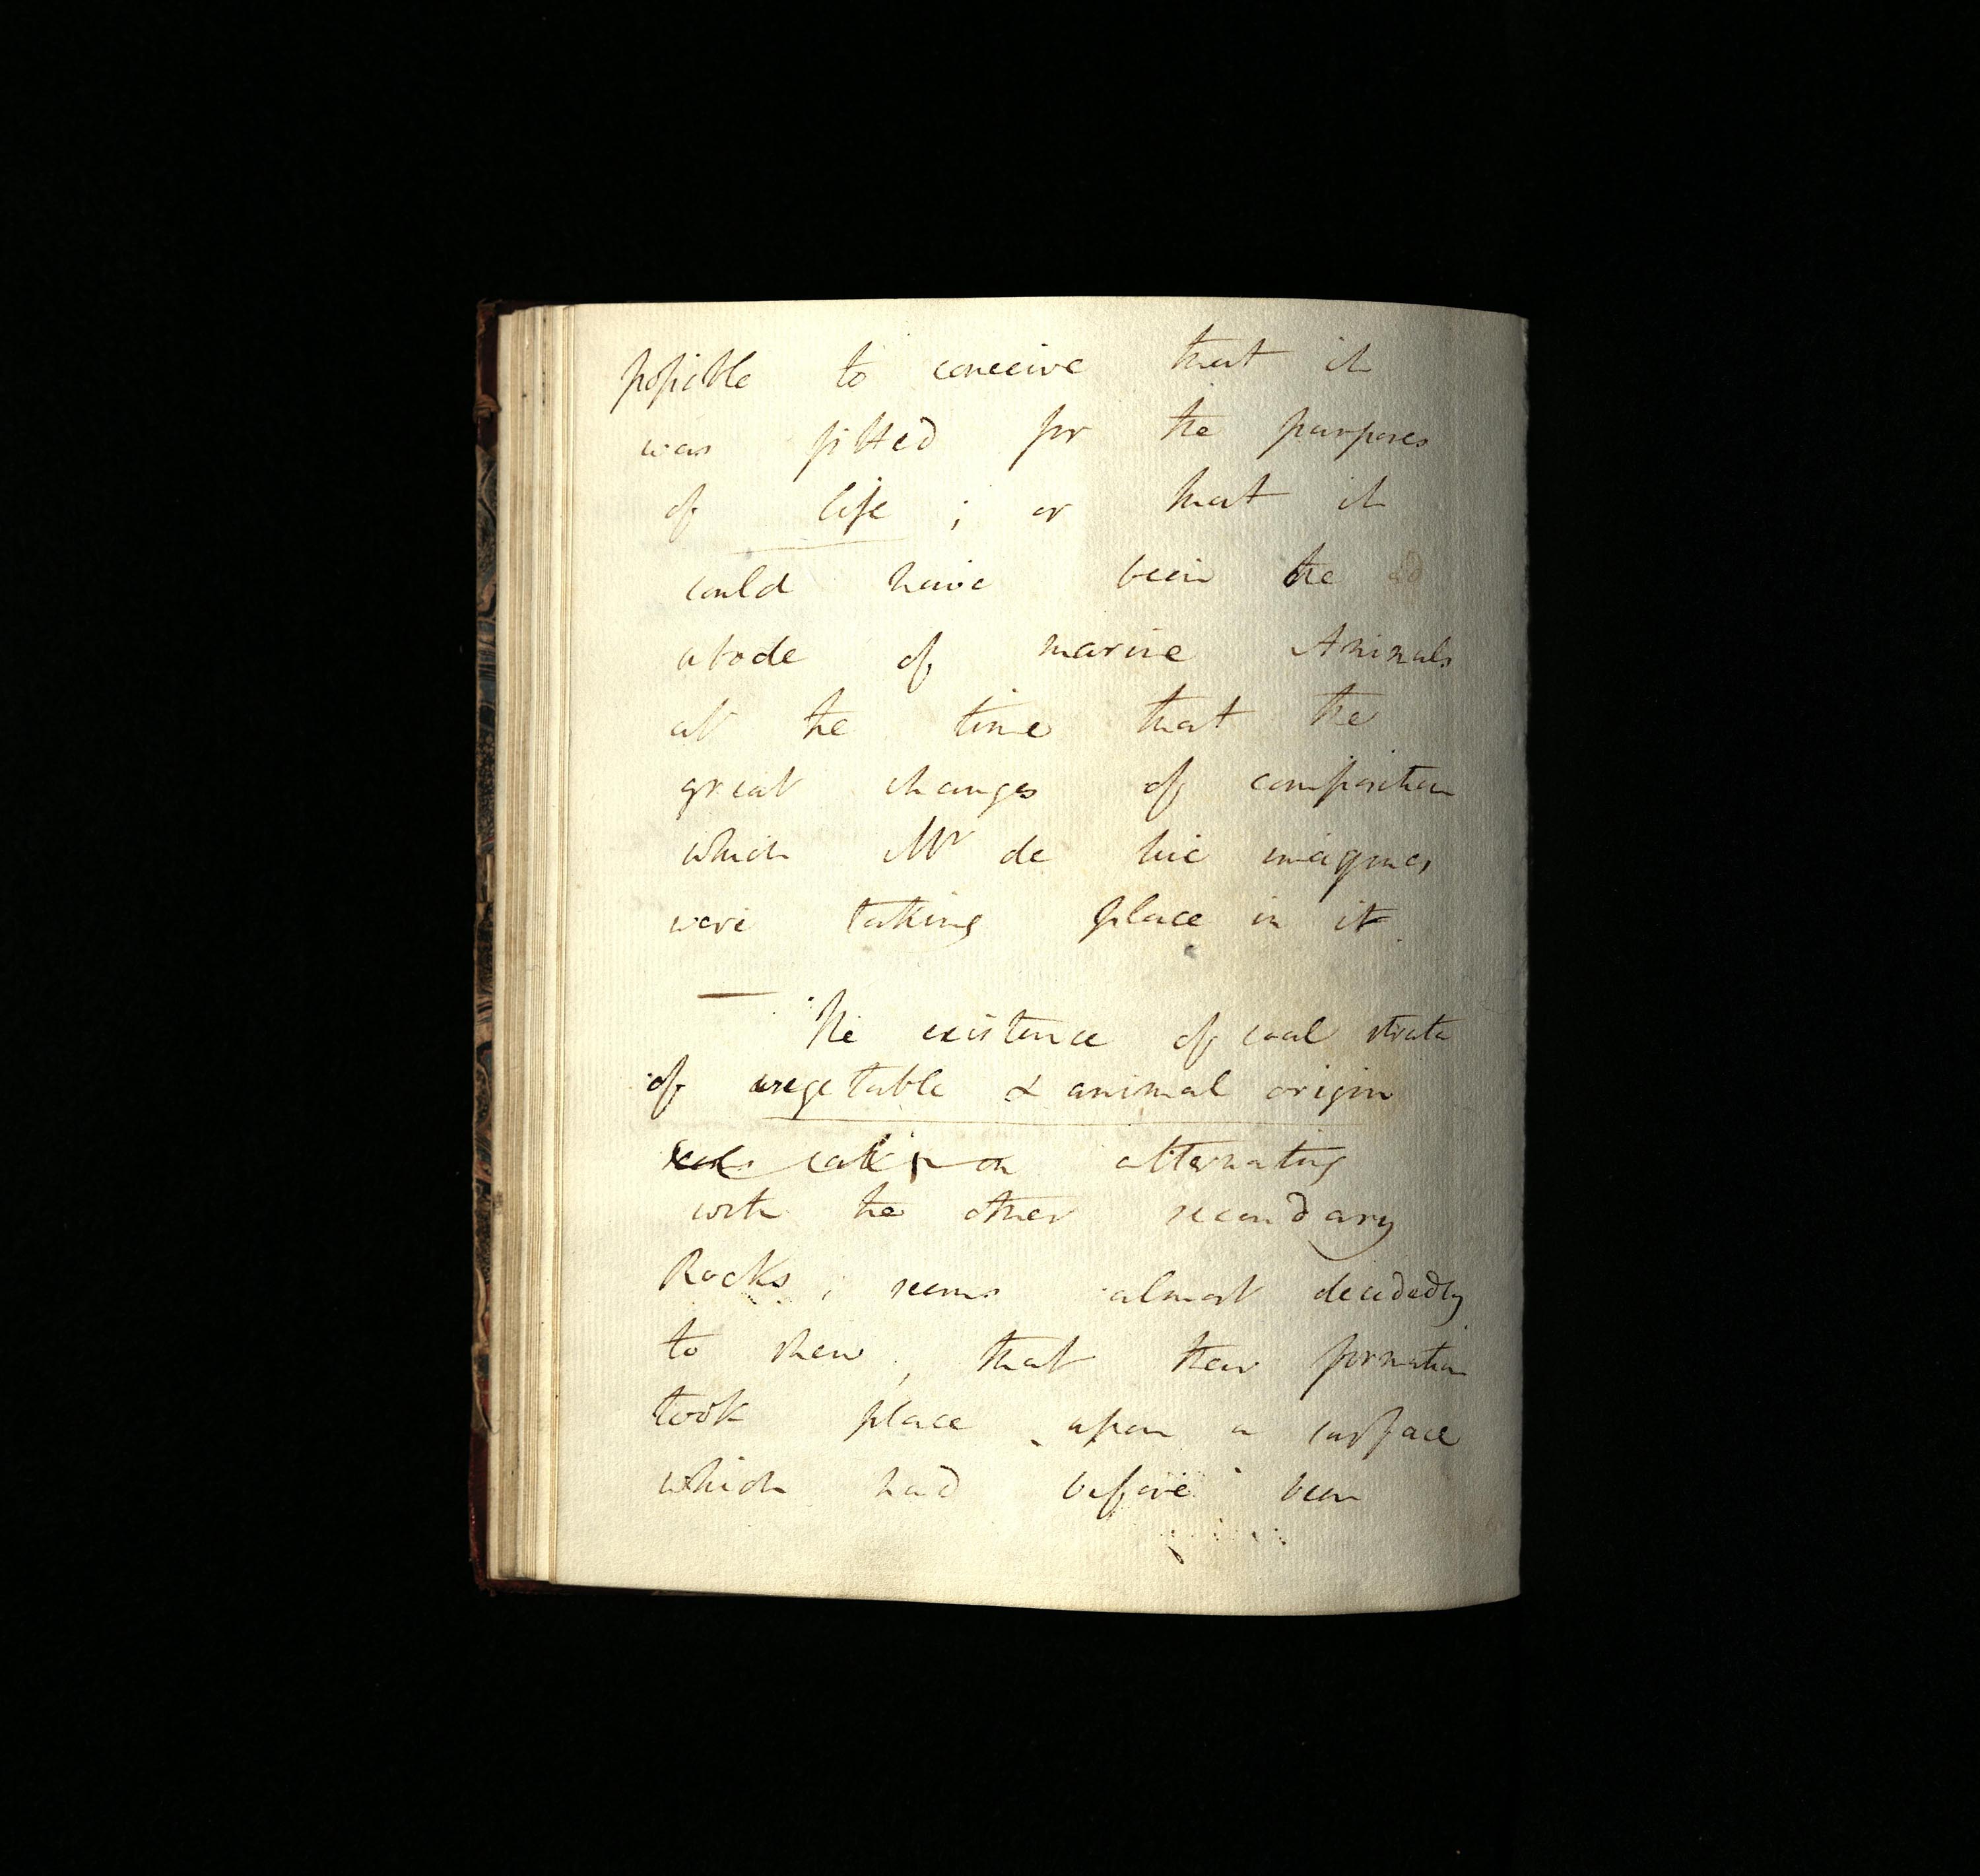 possible to conceive that it
was fitted for the purposes
of life ; or that it
could have been the
abode of marine Animals
at the time that the
great changes of composition
which Mr de luc imagines
were taking place in it.
— The existence of coal strata
of vegetable & animal origin
alternating
with the other secondary
Rocks, seems almost decidedly
to shew, that their formation
took place upon a surface
which had before been